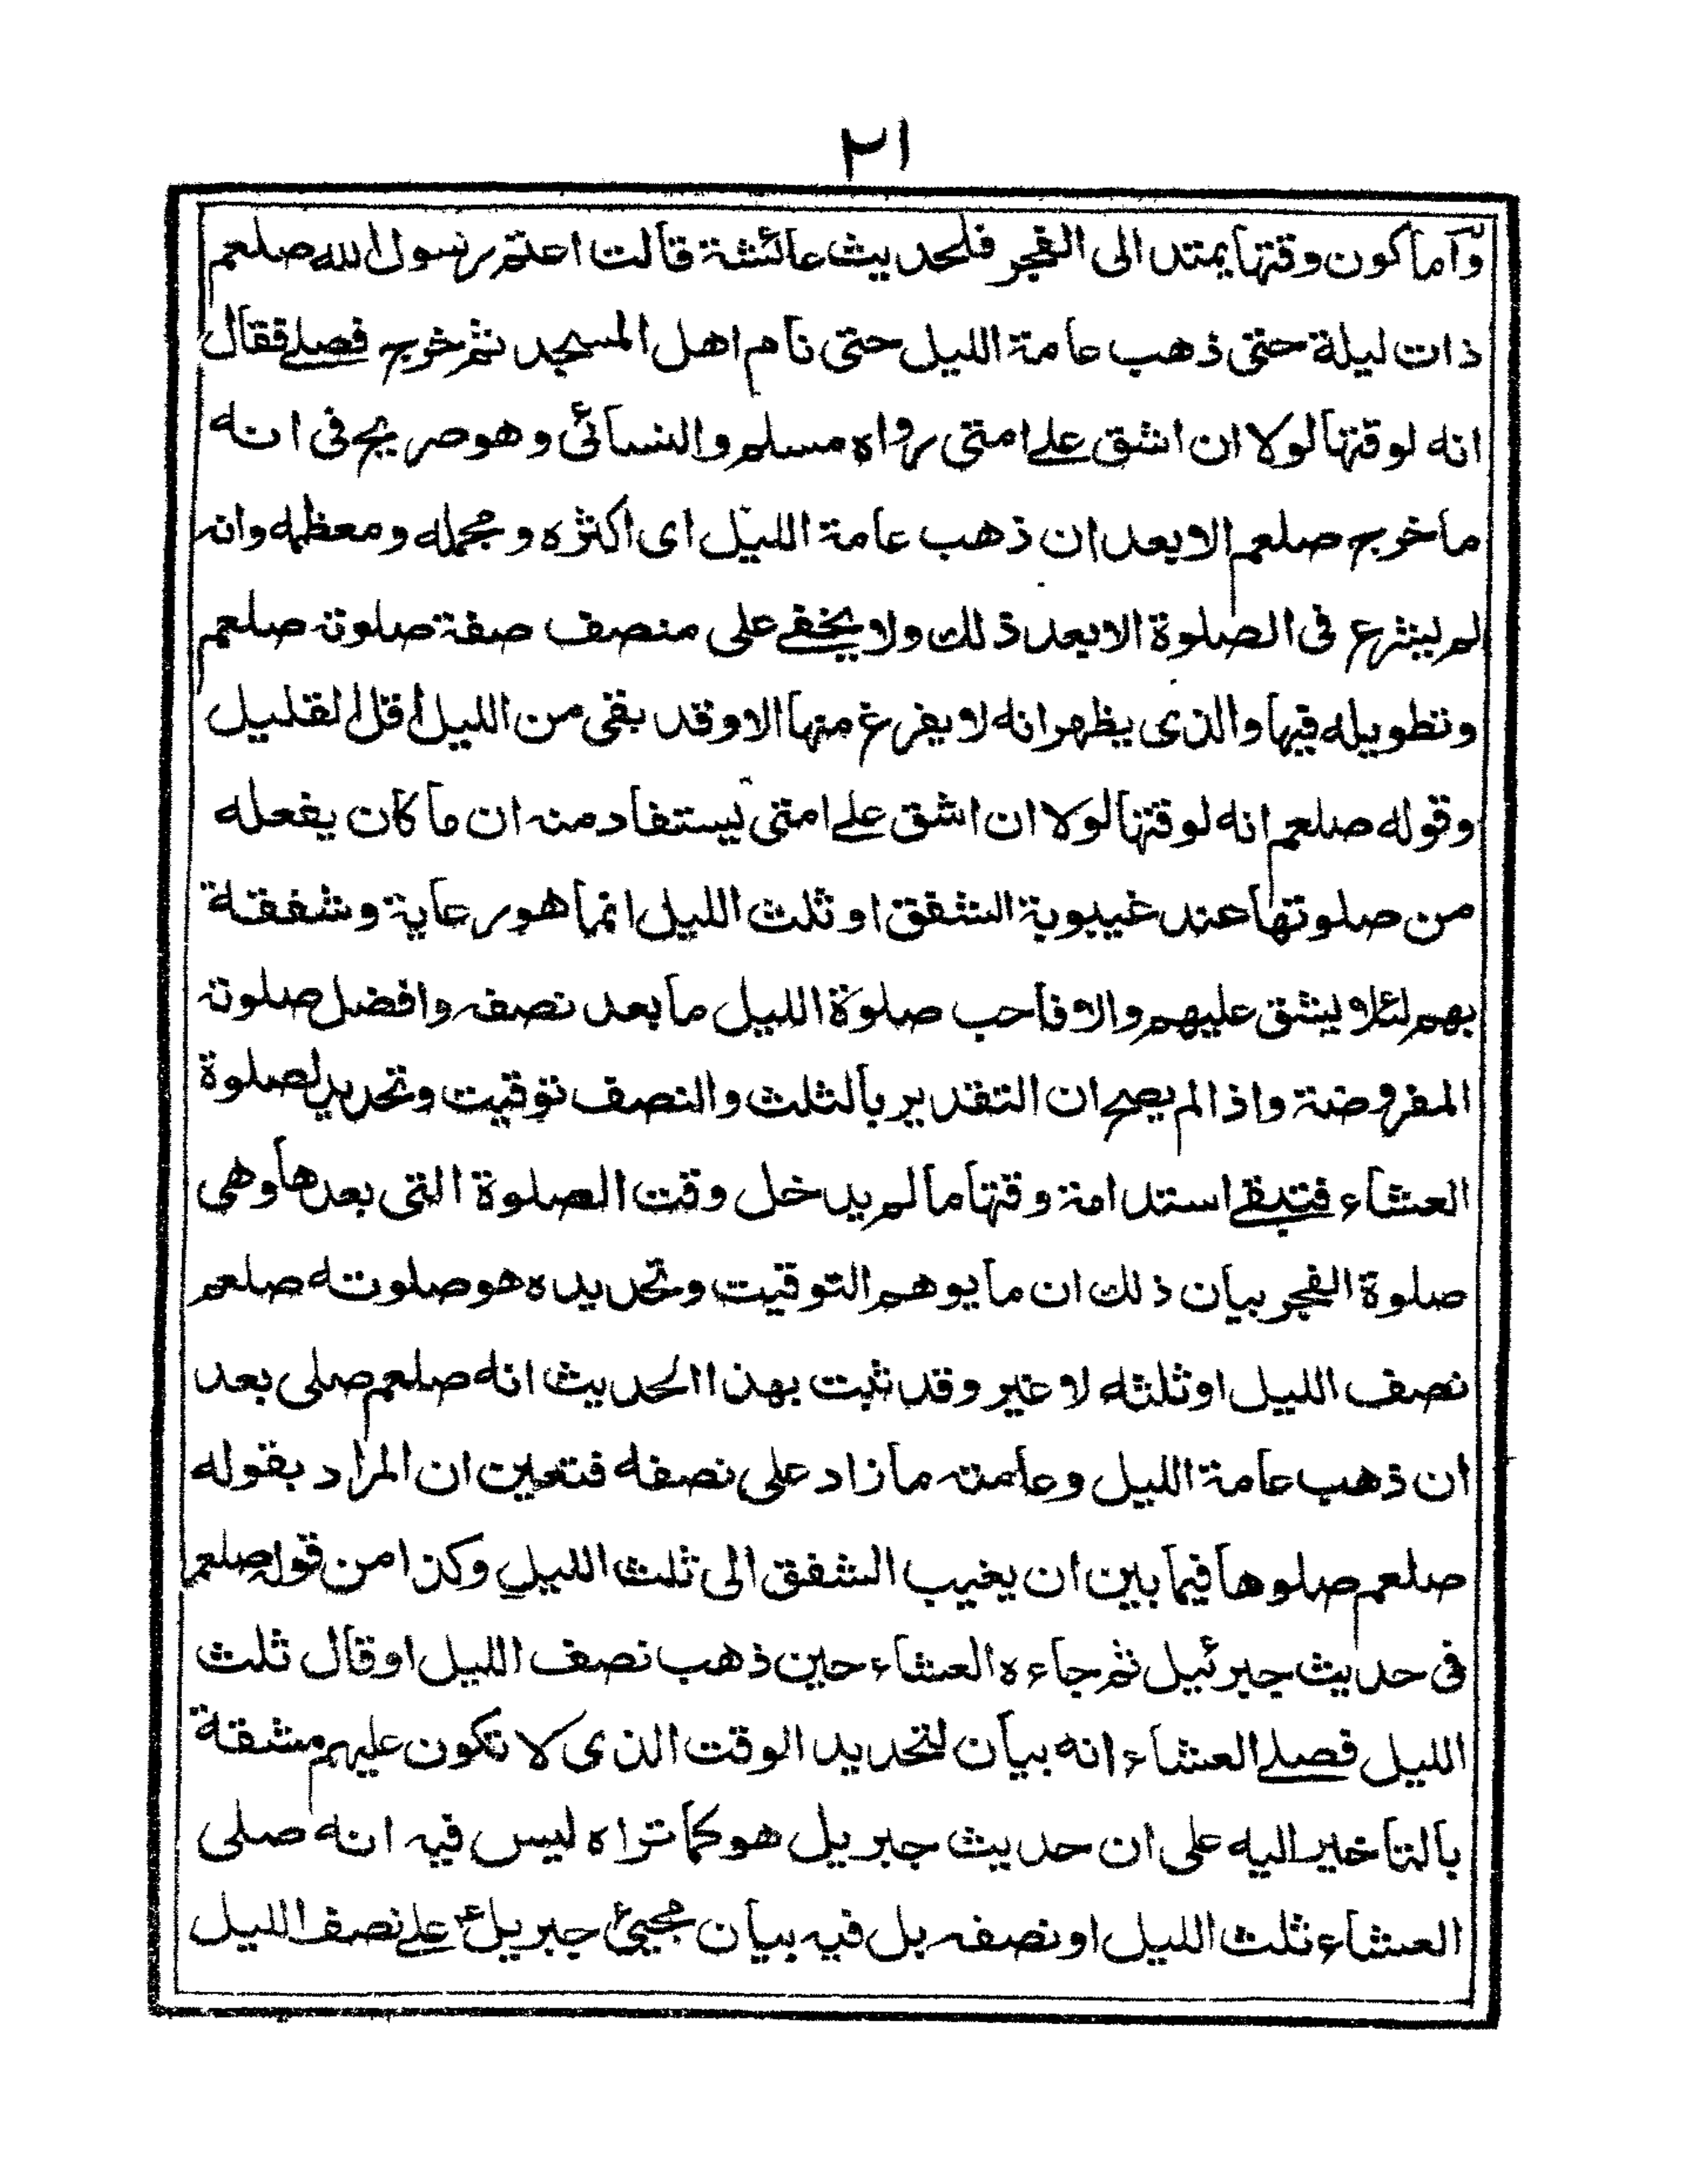 ٢١
وآما كون وقتها يمتد الى الفجر فلحديث عائشة قالت اعتم رسول الله صلعم
ذات ليلة حتى ذهب عامة الليل حتى نام اهل المسجد ثم خرج فصلے فقال
انه لوقتها لولا ان اشق علے امتى رواه مسلم والنسائى وهو صريح فى انه
ما خرج صلعم الا بعد ان ذهب عامة الليل اى اكثره و مجمله و معظمه وانه
لم يشرع فى الصلوة الا بعد ذلك ولا يخفے على منصف صفة صلوته صلعم
وتطويله فيها والذى يظهر انه لا يفرغ منها الا وقد بقى من الليل اقل القليل
وقوله صلعم انه لوقتها لولا ان اشق علے امتى يستفاد منه ان ما كان يفعله
من صلوتها عند غيبوبة الشفق او ثلث الليل انما هو رعاية وشفقة
بهم لئلا يشق عليهم والا فاحب صلوة الليل ما بعد نصفه وافضل صلوته
المفروضة واذا لم يصح ان التقدير بالثلث والنصف توقيت وتحديد لصلوة
العشاء فتبقے استدامة وقتها ما لم يدخل وقت الصلوة التى بعدها وهى
صلوة الفجر بيان ذلك ان ما يوهم التوقيت وتحديده هو صلوته صلعم
نصف الليل او ثلثه لا غير وقد ثبت بهذا الحديث انه صلعم صلى بعد
ان ذهب عامة الليل وعامته ما زاد على نصفه فتعين ان المراد بقوله
صلعم صلوها فيما بين ان يغيب الشفق الى ثلث الليل وكذا من قوله صلعم
فى حديث جبرئيل ثم جاءه العشاء حين ذهب نصف الليل او قال ثلث
الليل فصلے العشاء انه بيان لتحديد الوقت الذى لا تكون عليهم مشقة
بالتاخير اليه على ان حديث جبريل هو كما تراه ليس فيه انه صلى
العشاء ثلث الليل او نصفه بل فيه بيان مجيئ جبريلؑ علے نصف الليل